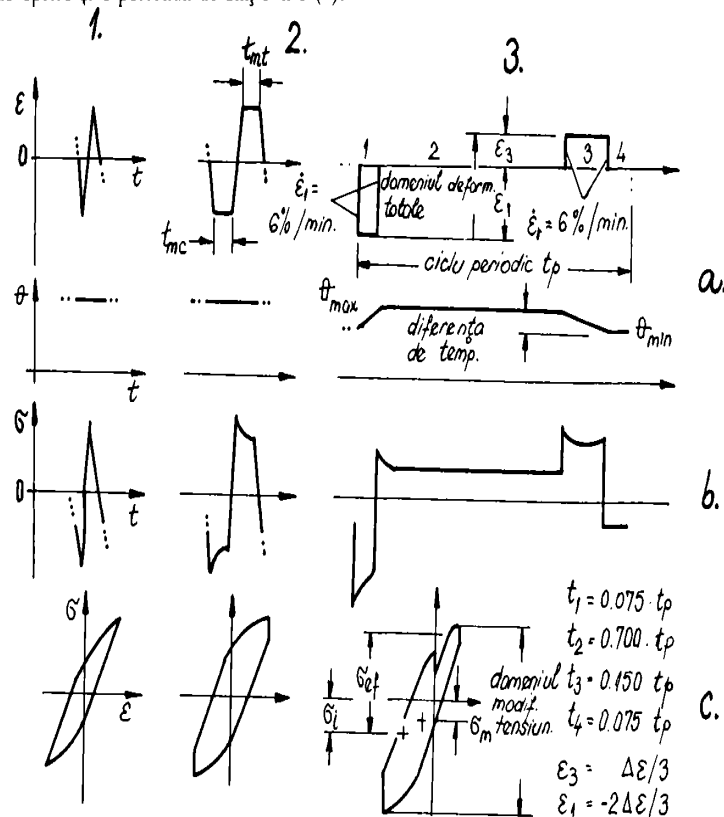 1.
2.
3.
t_mt
ε
0
t
t_mc
ε̇₁ =
6%/min.
1
2
3
4
ε₃
domeniul deform.
totale
ε₁
ε̇ₜ = 6%/min.
ciclu periodic tp
a.
θ
t
θmax
diferența
de temp.
θmin
σ
0
t
b.
σ
ε
σi
σef
σm
domeniul
modif.
tensiun.
t₁ = 0.075 · tp
t₂ = 0.700 · tp
t₃ = 0.150 tp
t₄ = 0.075 tp
ε₃ = Δε/3
ε₁ = -2Δε/3
c.